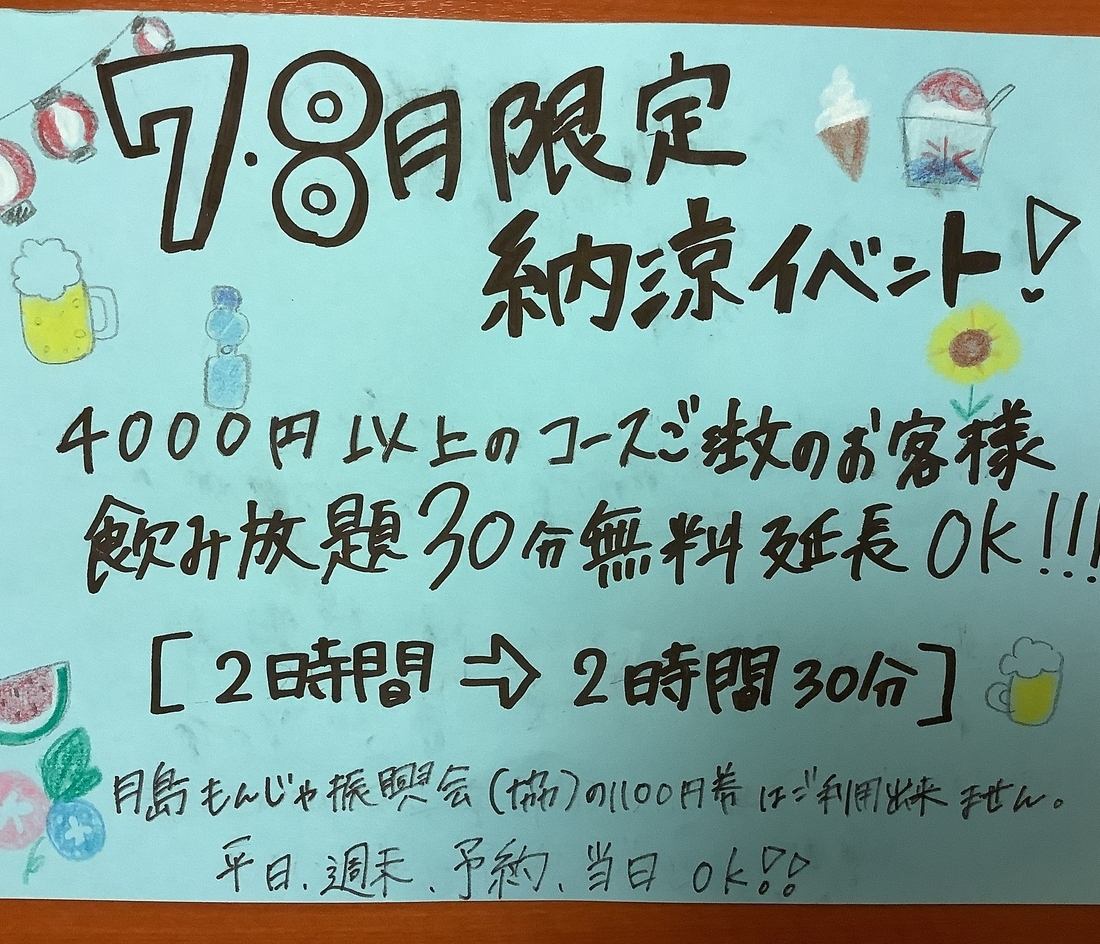 7・8月限定
納涼イベント!
氷
4000円以上のコースご注文のお客様
飲み放題30分無料延長OK!!!
[2時間⇨2時間30分]
月島もんじゃ振興会(協)の1100円券はご利用出来ません。
平日、週末、予約、当日 OK!!